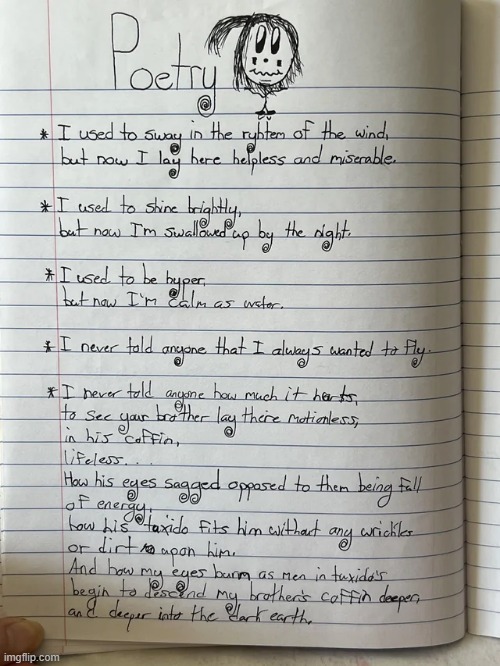 Poetry
* I used to sway in the ryhtem of the wind,
but now I lay here helpless and miserable.
* I used to shine brightly,
but now I'm swallowed up by the night.
* I used to be hyper,
but now I'm calm as water.
* I never told anyone that I always wanted to fly.
* I never told anyone how much it hurts,
to see your brother lay there motionless,
in his coffin,
lifeless...
How his eyes sagged opposed to them being full
of energy,
how his tuxido fits him without any wrickles
or dirt upon him.
And how my eyes burn as men in tuxido's
begin to descend my brother's coffin deeper,
and deeper into the dark earth.
imgflip.com